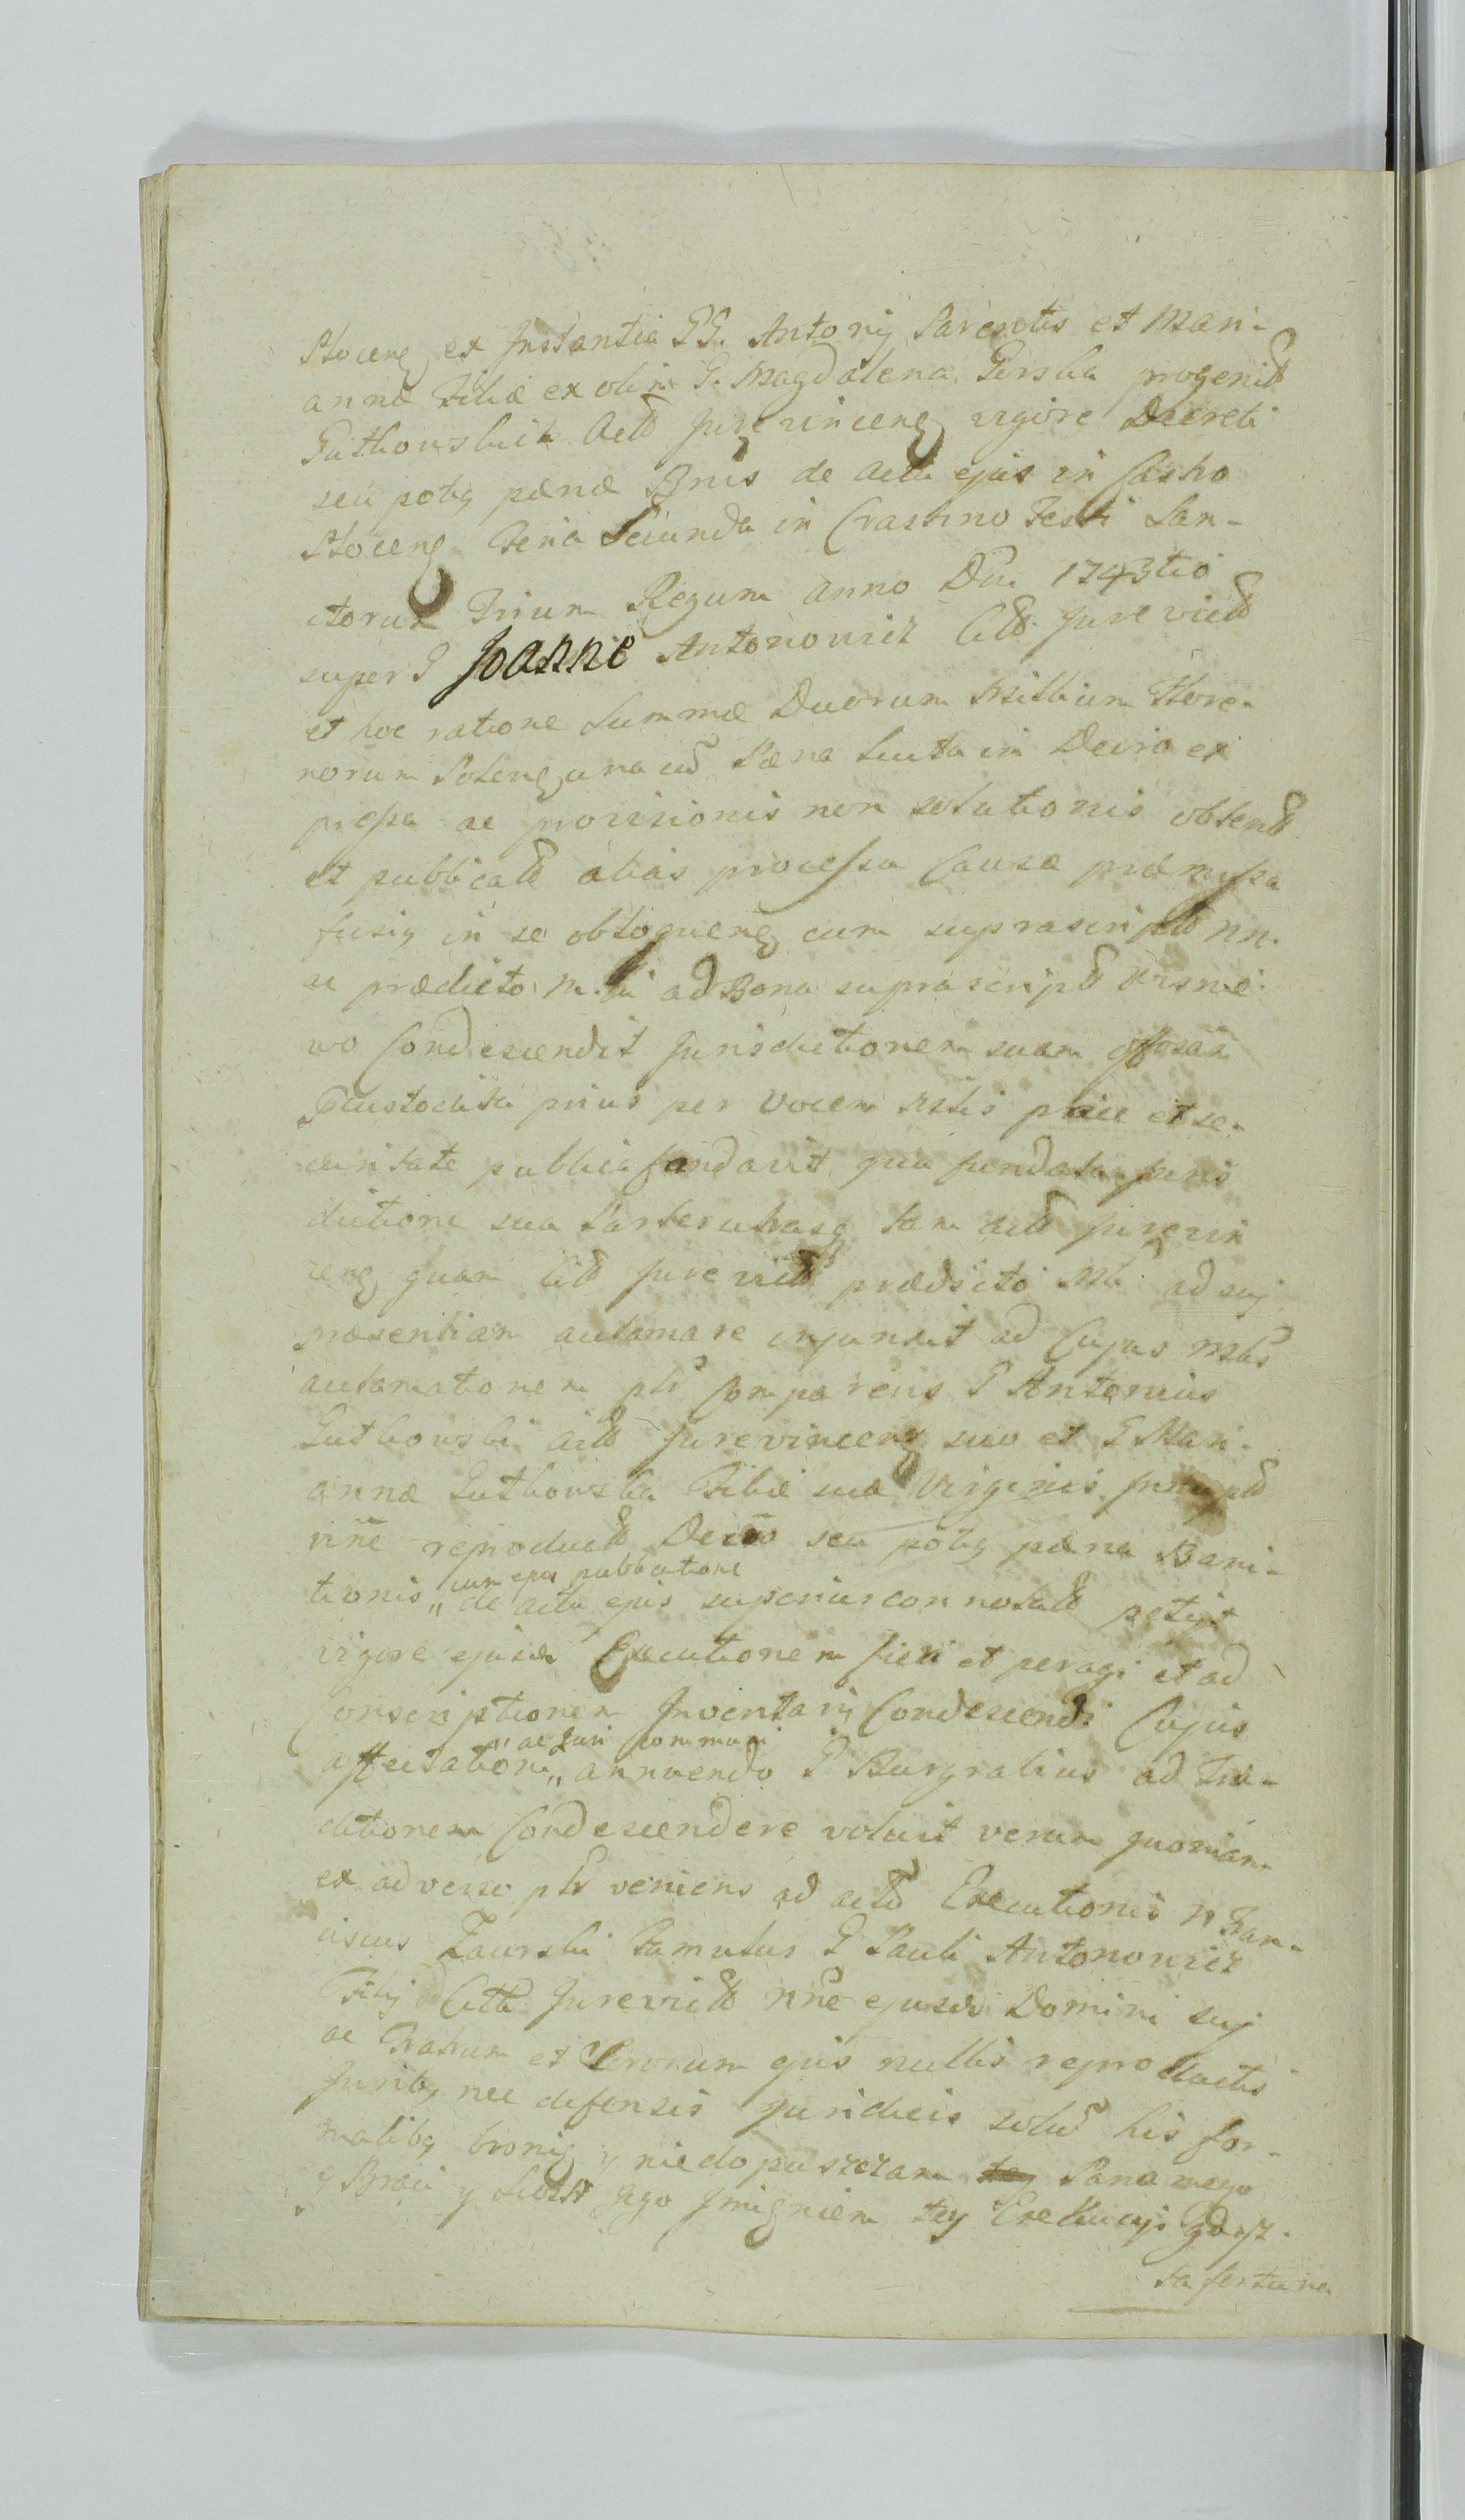 Plocen ex Instantia GG. Antonij Parentis et Mari-
annæ Filiæ ex olim G. Magdalena Gorska progenit
Gutkowskich Act Jurevincen vigore Decreti
seu potiq pænæ Bnis de actu ejus in Castro
Plocen Feria Secunda in Crastino Festi San-
ctorum Trium Regum Anno Dni 1743tio
super G Joanne Antonowicz Citt Jurevict
et hoc ratione Summæ Duorum Millium Flore-
norum Polen una cu Pæna Lucta in Decro ex
presse ac provisionis non solutionis obtent
et publicat alias processu Causæ præmissa
fusiq in se obloquen cum suprascript nn.
ac prædicto M.li ad Bona suprascript
wo Condescendit Jurisdictionem suam offosam
Custodita prius per vocem Mstis pace et se-
curitate publica fundavit qua fundata Juris
dictione sua Partes utrasq tam act Jurevin
cen quam Citt Jurevict prædicto Mli ad suj
præsentiam acclamare injunxit ad Cujus Mlis
acclamationem plr Comparens G Antonius
Gutkowski act Jurevincen suo et G Mari-
annæ Gutkowska Filiæ suæ Virginis
nne reproduct Decro seu potiq pæna Bani-
tionis „ cum ejus publicatione de actu ejus superius connotat petijt
vigore ejusdē Executionem fieri et peragi et ad
Conscriptionem Inventarij Condescendi Cujus
affectationi „ ac Juri communi annuendo G Burgrabius ad Tra-
ditionem Condescendere voluit verum quoniam
ex adverso plr veniens ad act Executionis N Fran-
ciscus Zaurski Famulus G Pauli Antonowicz
Filij Citt Jurevict nne ejusdē Domini suj
ac Fratrum et Sororum ejus nullis reproductis
Juribq nec defensis juridicis solu his for-
malibq bronię y niedopuszczam Pana mego
y Braci y Siostr Jego Jmieniem tey Exekucyi gdysz
ta fortuna